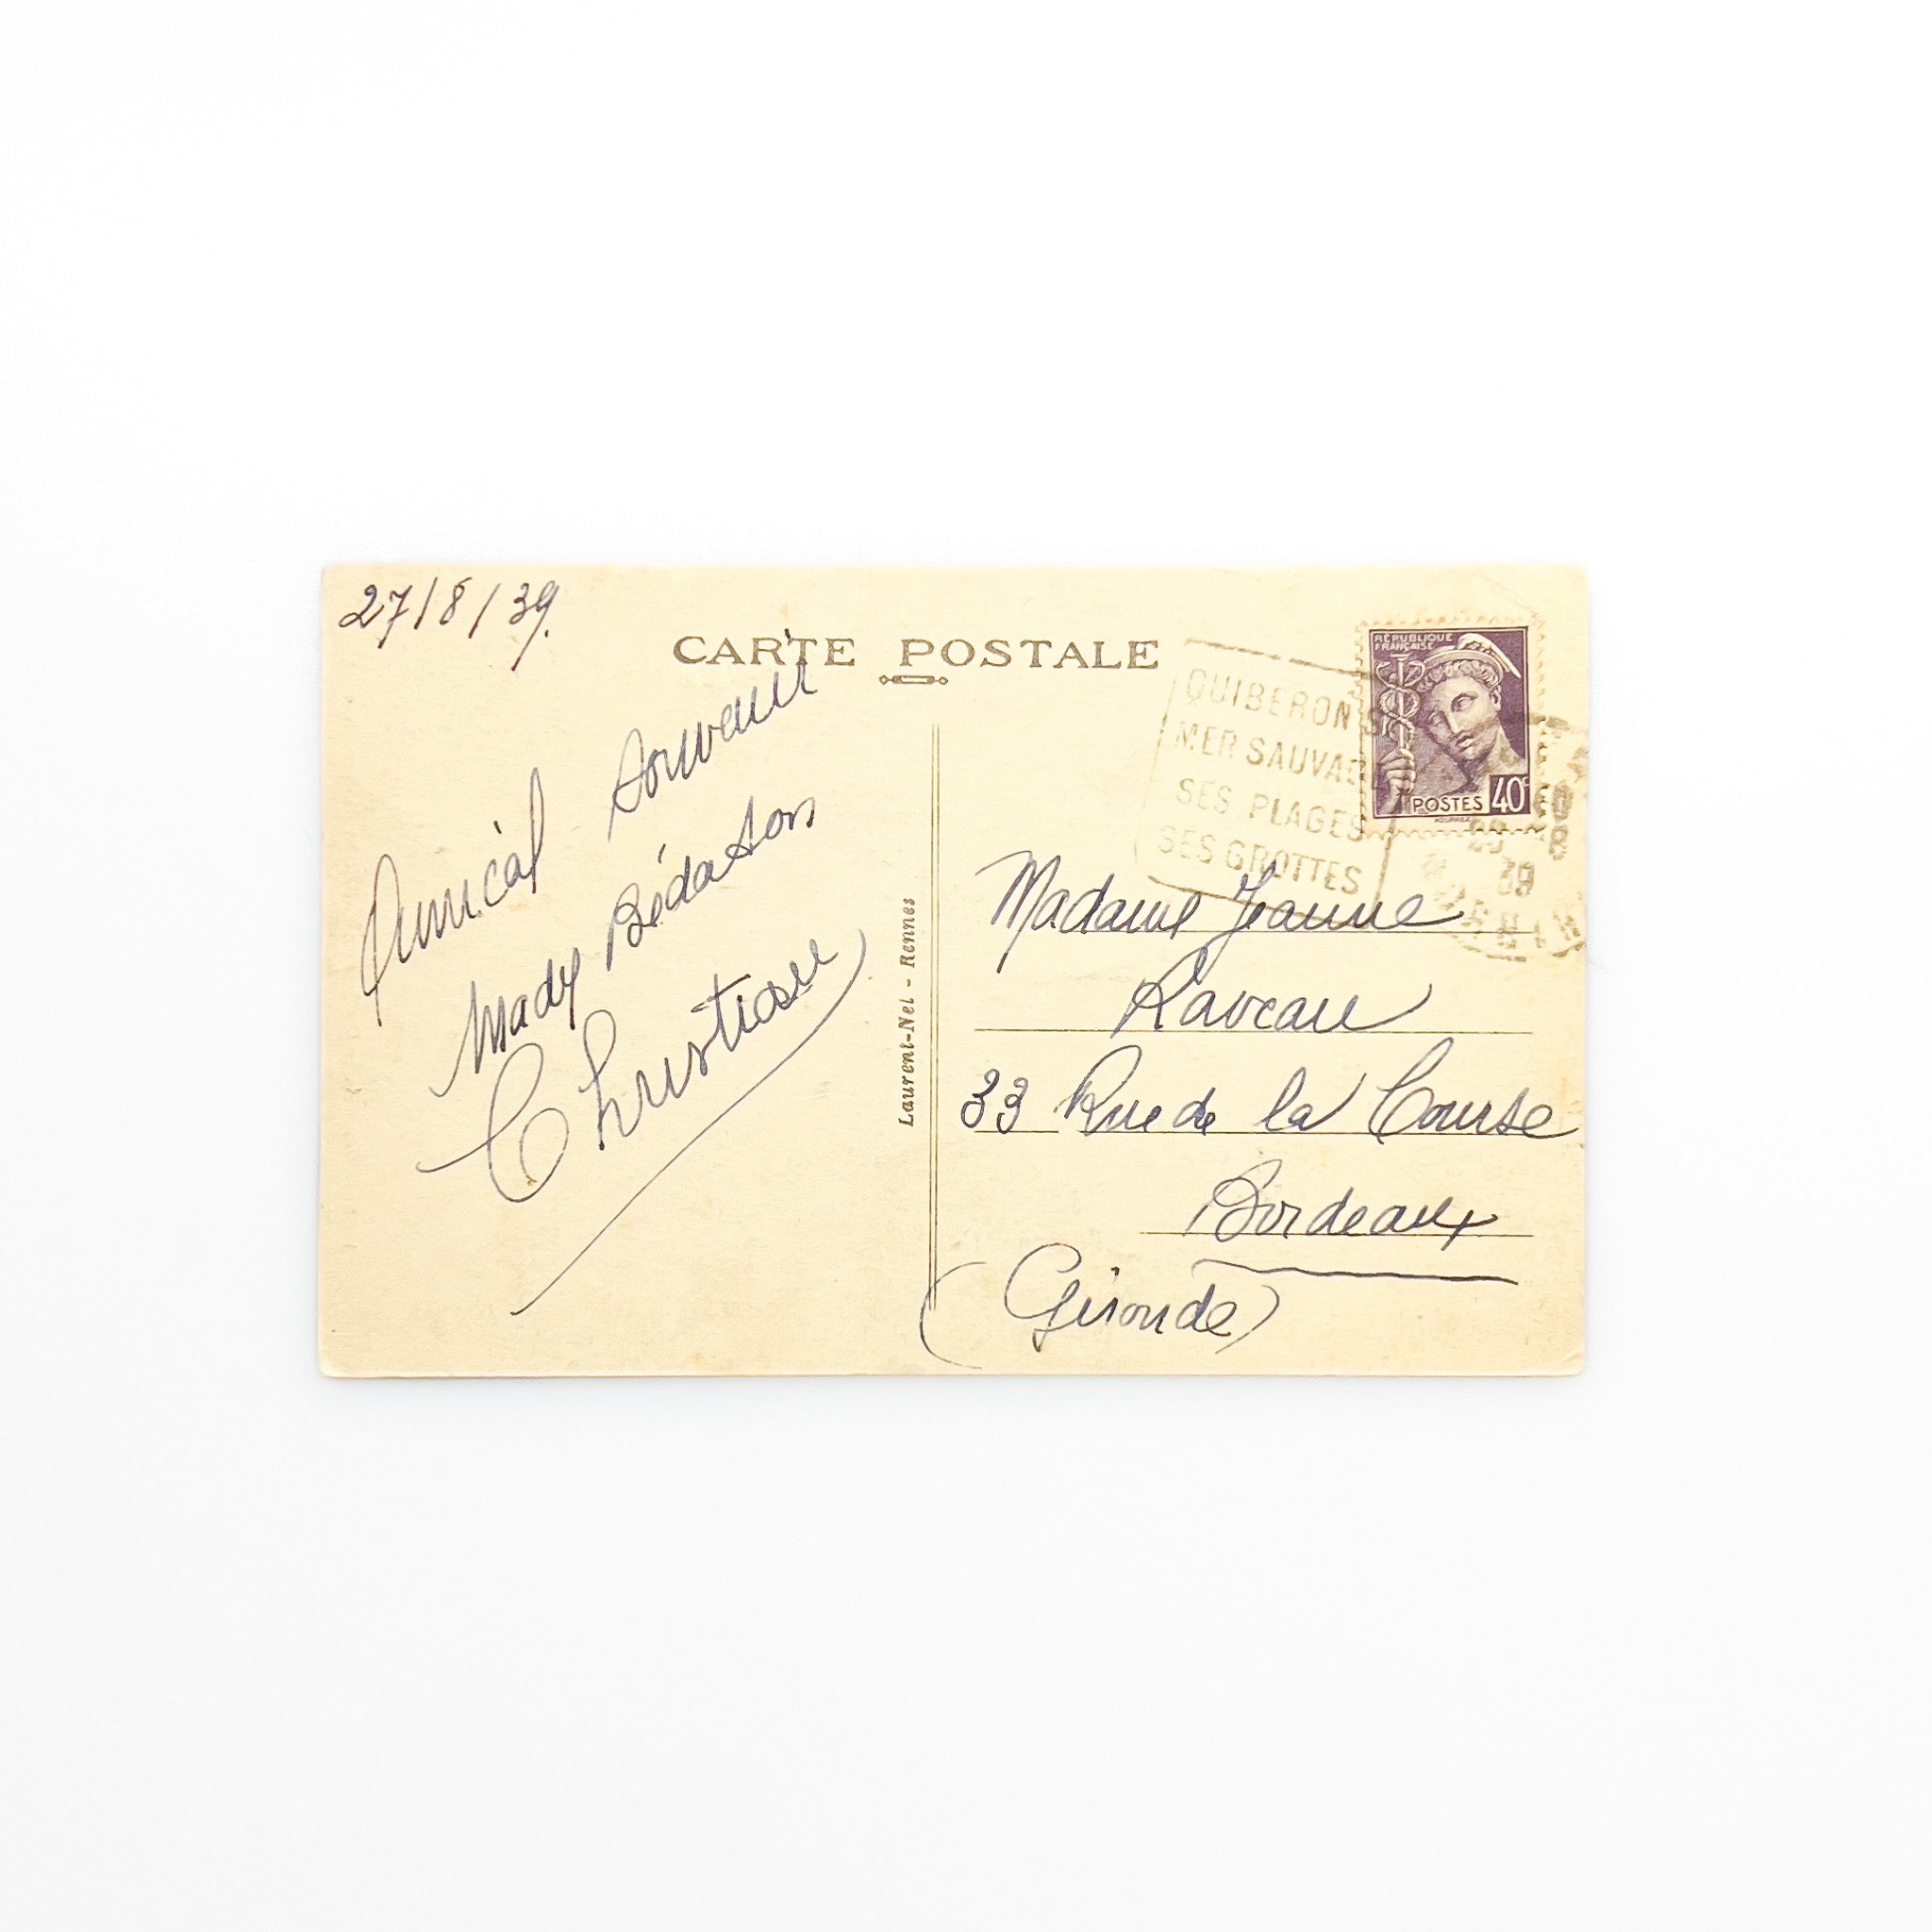 27/8/39.
CARTE POSTALE
Amical souvenir
Mady Bédason
Christiane
Laurent-Nel - Rennes
QUIBERON S
MER SAUVAGE
SES PLAGES
SES GROTTES
RÉPUBLIQUE
FRANÇAISE
POSTES 40c
39
Madame Jeanne
Raveau
33 Rue de la Course
Bordeaux
(Gironde)